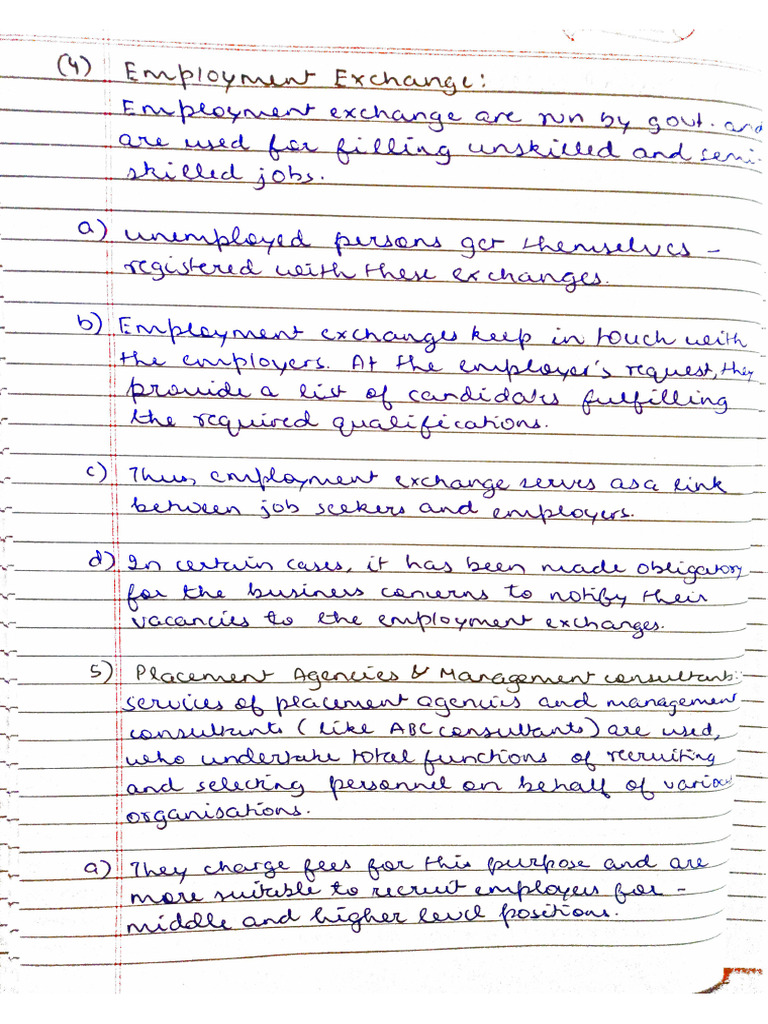 (4) Employment Exchange:
Employment exchange are run by govt. and
are used for filling unskilled and semi-
skilled jobs.
a) unemployed persons get themselves -
registered with these exchanges.
b) Employment exchanges keep in touch with
the employers. At the employer's request, they
provide a list of candidates fulfilling
the required qualifications.
c) Thus, employment exchange serves as a link
between job seekers and employers.
d) In certain cases, it has been made obligatory
for the business concerns to notify their
vacancies to the employment exchanges.
5) Placement Agencies & Management consultants:
services of placement agencies and management
consultants (like ABC consultants) are used,
who undertake total functions of recruiting
and selecting personnel on behalf of various
organisations.
a) They charge fees for this purpose and are
more suitable to recruit employers for -
middle and higher level positions.